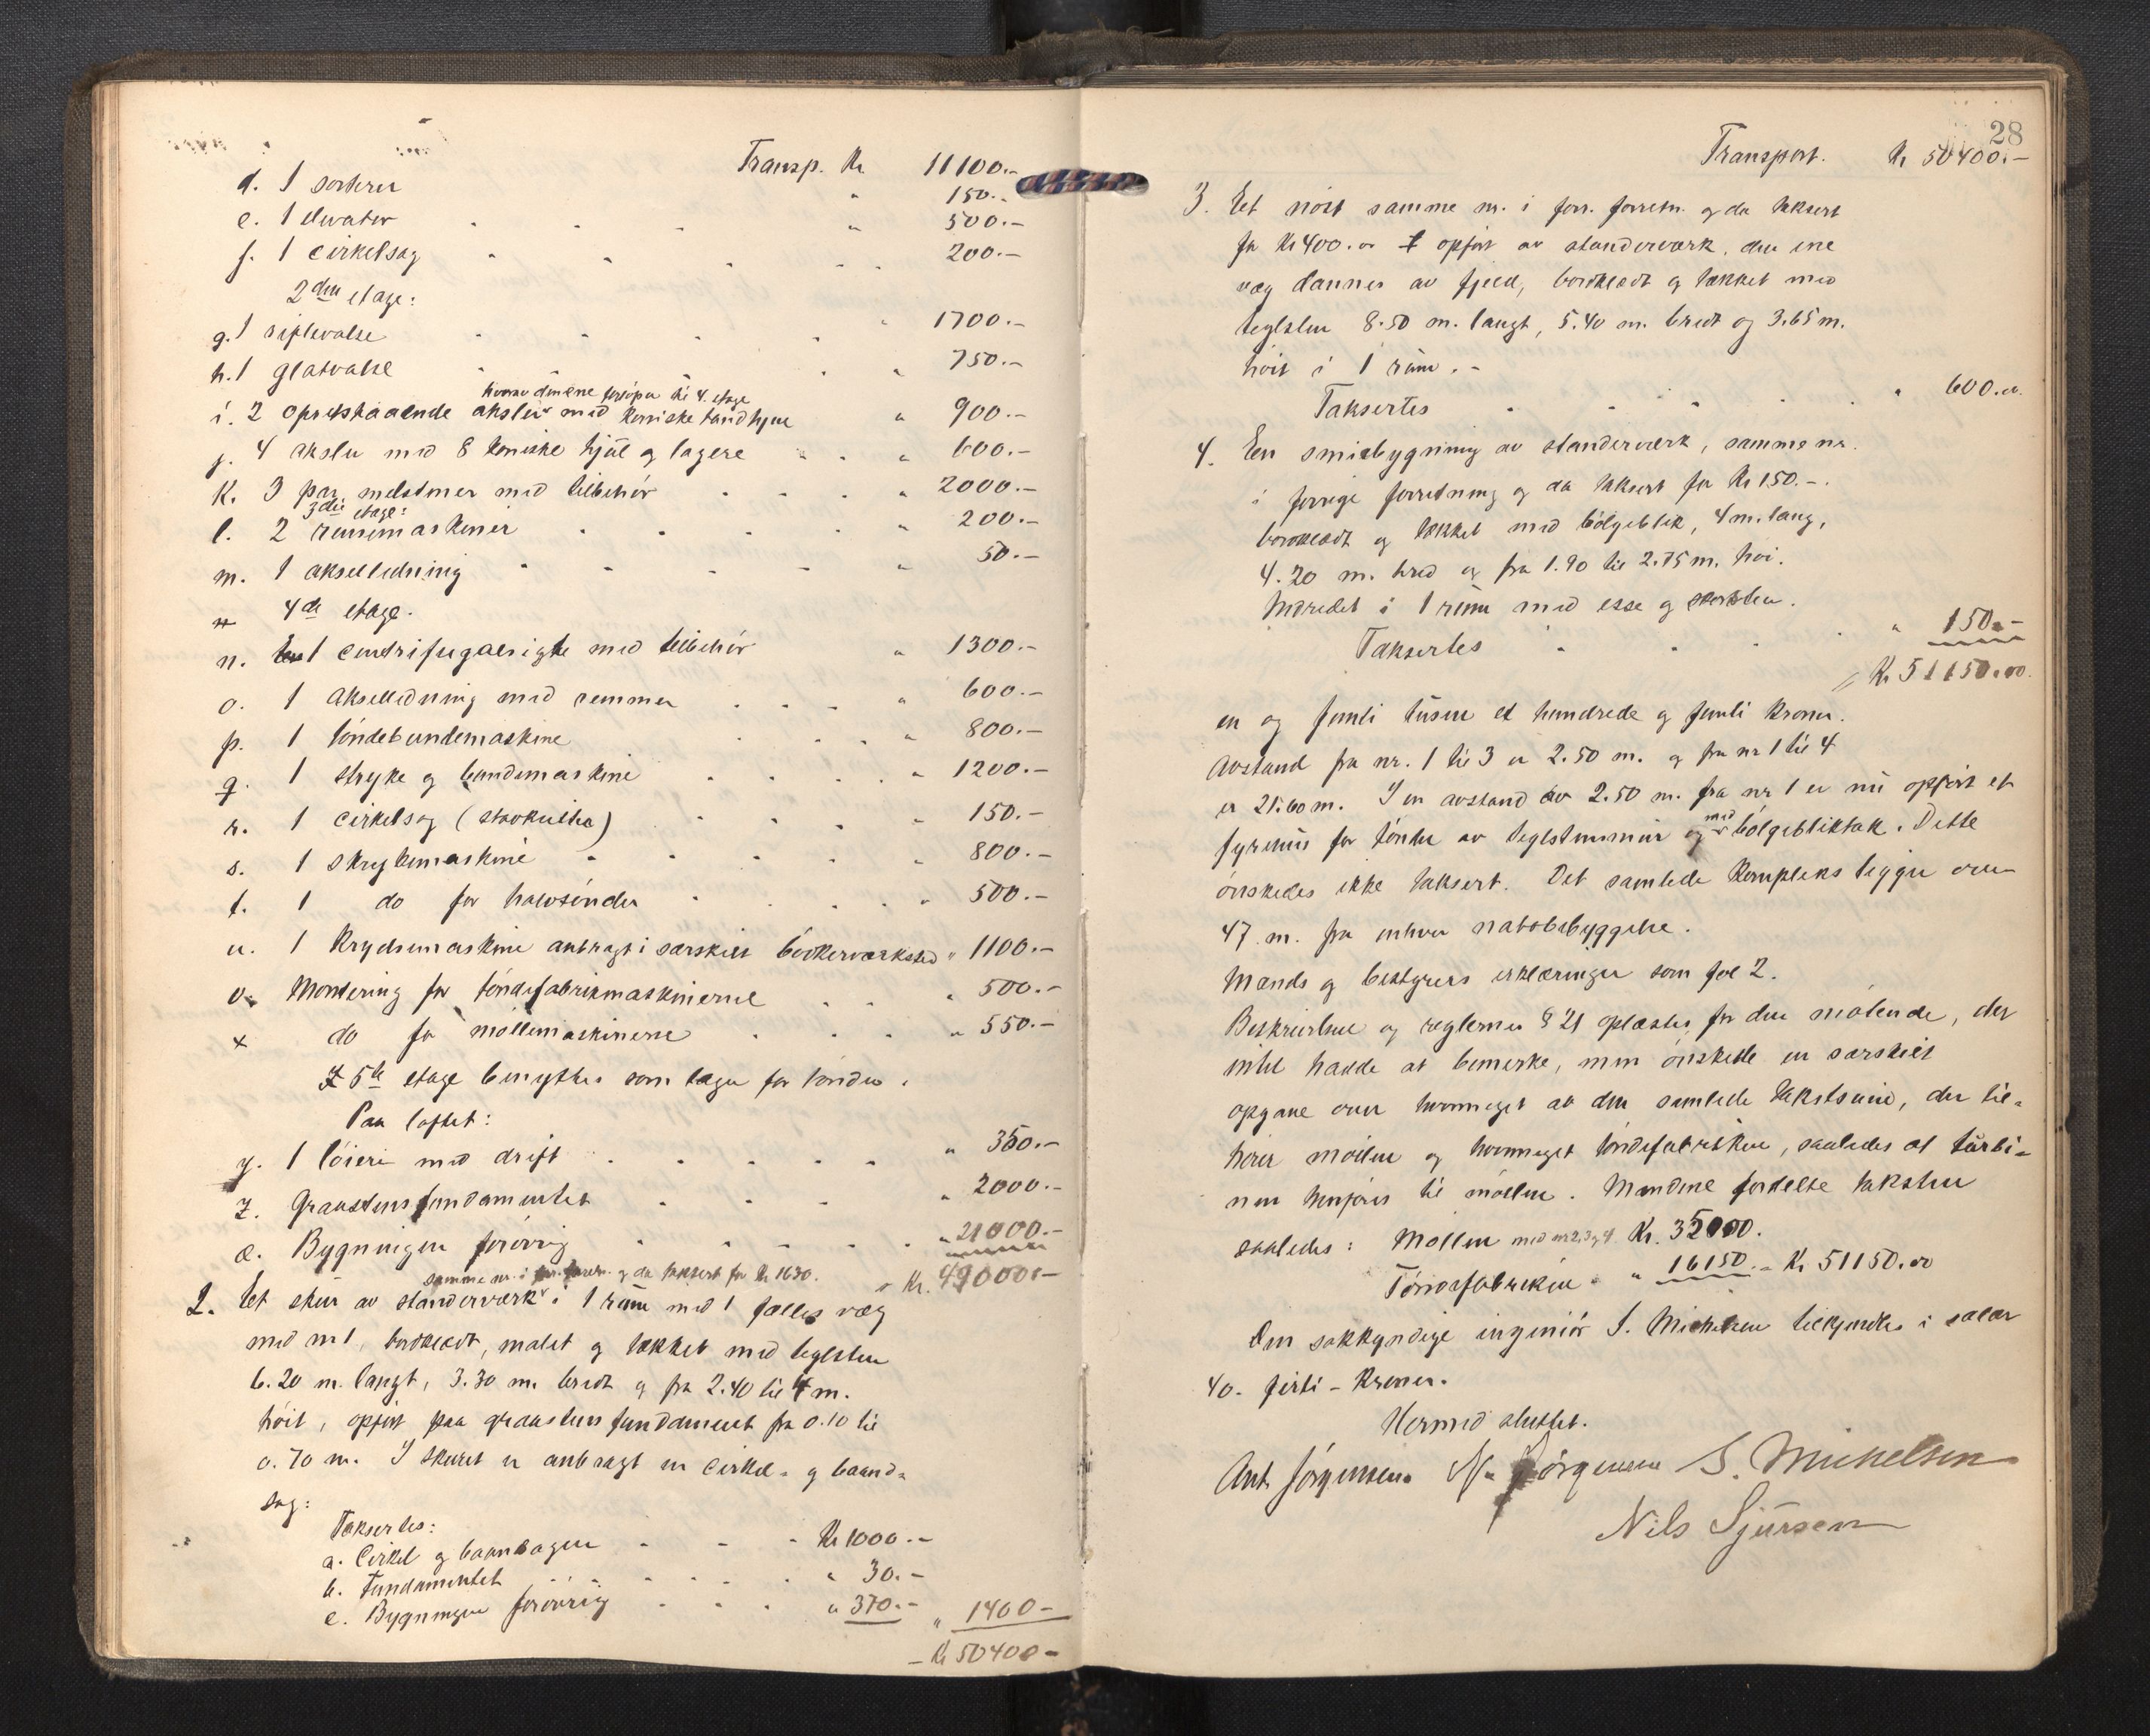 Transp. Kr 11100.-
d. 1 sorterer " 150.-
e. 1 elevator " 500.-
f. 1 cirkelsag 200.-
2den etage:
g. 1 riflevalse " 1700.-
h. 1 glatvalse " 750.-
hvorav den ene forløper til 4. etage
i. 2 opretstaaende aksler med koniske tandhjul " 900.-
j. 4 aksler med 8 koniske hjul og lagere " 600.-
k. 3 par melstener med tilbehör " 2000.-
3die etage:
l. 2 rensemaskiner " 200.-
m. 1 akselledning " 50.-
n 4de etage.
n. 1 centrifugalsigte med tilbehör " 1300.-
o. 1 akselledning med remmer " 600.-
p. 1 töndebundemaskine " 800.-
q. 1 stryke og bundemaskine " 1200.-
r. 1 cirkelsag (stavkutte) " 150.-
s. 1 skrybemaskine " 800.-
t. 1 do for halvtönder " 500.-
u. 1 krydsemaskine anbragt i særskilt bödkerværksted " 1100.-
v. Montering for töndefabrikmaskinerne " 500.-
x do for möllemaskinerne " 550.-
5te etage benyttes som lager for tönder.
Paa loftet:
y. 1 löieri med drift " 350.-
z. Graastensfundamentet " 2000.-
æ. Bygningen forövrig " 21000.-
Kr. 49000.-
samme nr. i forr. forretn. og da taksert for Kr 1630.
2. Et skur av standerværk i 1 rum med 1 fælles væg
med nr 1, bordklædt, malet og tækket med teglsten
6.20 m. langt, 3.30 m. bredt og fra 2.40 til 4 m.
höit, opfört paa graastens fundament fra 0.10 til
0.70 m. I skuret er anbragt en cirkel- og baand-
sag:
Taksertes:
a. Cirkel og baandsagen Kr 1000.-
b. Fundamentet " 30.-
c. Bygningen forövrig " 370.- " 1400-
Kr 50400-
28
Transport. Kr 50400.-
3. Et nöst samme nr. i forr. forretn. og da taksert
for Kr 400.00 opfört av standerværk, den ene
væg dannes av fjeld, bordklædt og tækket med
teglsten 8.50 m. langt, 5.40 m. bredt og 3.65 m.
höit i 1 rum.-
Taksertes " 600.00
4. En smiebygning av standerværk, samme nr.
i forrige forretning og da taksert for Kr 150.-.
bordklædt og tækket med bölgeblik, 4 m. lang,
4.20 m. bred og fra 1.90 til 2.75 m. höi.
Indredet i 1 rum med esse og skorsten.
Taksertes " 150.-
Kr 51150.00
en og femti tusen et hundrede og femti kroner.
Avstand fra nr. 1 til 3 er 2.50 m. og fra nr 1 til 4
er 21.60 m. I en avstand av 2.50 m. fra nr 1 er nu opfört et
fyrehus for tönder av teglstensmur og med bölgebliktak. Dette
önskedes ikke taksert. Det samlede kompleks ligger over
47 m. fra enhver nabobebyggelse.
Mænds og bestyrers erklæringer som fol 2.
Beskrivelsen og reglernes § 21 oplæstes for den mötende, der
intet hadde at bemerke, men önskede en særskilt
opgave over hvormeget av den samlede takstsum, der til-
hörer möllen og hvormeget töndefabrikken, saaledes at turbi-
nen henföres til möllen. Mændene fordelte taksten
saaledes: Möllen med nr 2, 3 og 4 Kr. 35000.
Töndefabrikken " 16150.- Kr 51150.00
Den sakkyndige ingeniör S. Michelsen tilkjendtes i salær
40- firti - kroner.
Hermed sluttet.
Ant. Jörgensen. N. Jörgensen S. Michelsen
Nils Sjursen